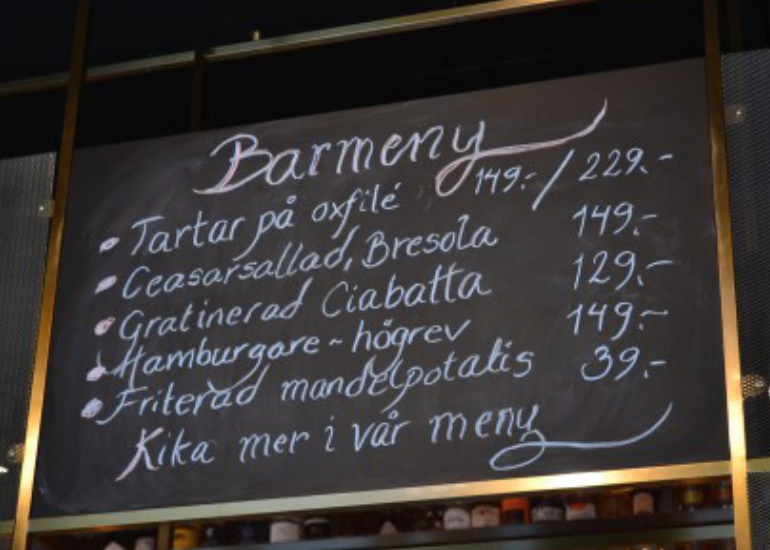 Barmeny
Tartar på oxfilé 149:- / 229.-
Ceasarsallad, Bresola 149.-
Gratinerad Ciabatta 129.-
Hamburgare - högrev 149.-
Friterad mandelpotatis 39.-
Kika mer i vår meny